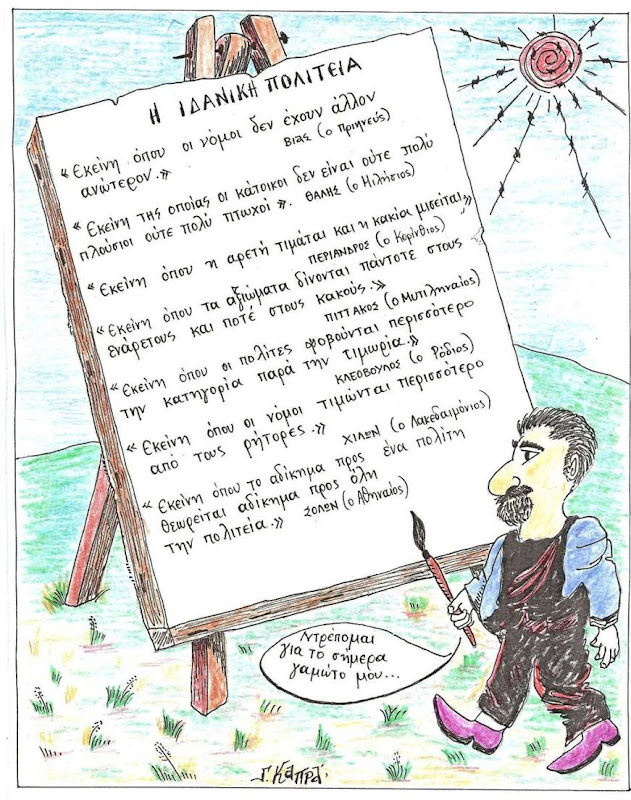 Η ΙΔΑΝΙΚΗ ΠΟΛΙΤΕΙΑ
« Εκείνη όπου οι νόμοι δεν έχουν άλλον
ανώτερον.» ΒΙΑΣ (ο Πριηνεύς)
« Εκείνη της οποίας οι κάτοικοι δεν είναι ούτε πολύ
πλούσιοι ούτε πολύ πτωχοί ». ΘΑΛΗΣ (ο Μιλήσιος)
« Εκείνη όπου η αρετή τιμάται και η κακία μισείται»
ΠΕΡΙΑΝΔΡΟΣ (ο Κορίνθιος)
« Εκείνη όπου τα αξιώματα δίνονται πάντοτε στους
ενάρετους και ποτέ στους κακούς.»
ΠΙΤΤΑΚΟΣ (ο Μυτιληναίος)
« Εκείνη όπου οι πολίτες φοβούνται περισσότερο
την κατηγορία παρά την τιμωρία.»
ΚΛΕΟΒΟΥΛΟΣ (ο Ρόδιος)
« Εκείνη όπου οι νόμοι τιμώνται περισσότερο
από τους ρήτορες.» ΧΙΛΩΝ (ο Λακεδαιμόνιος)
« Εκείνη όπου το αδίκημα προς ένα πολίτη
θεωρείται αδίκημα προς όλη
την πολιτεία.» ΣΟΛΩΝ (ο Αθηναίος)
Ντρέπομαι
για το σήμερα
γαμώτο μου...
Γ. Καπρά.